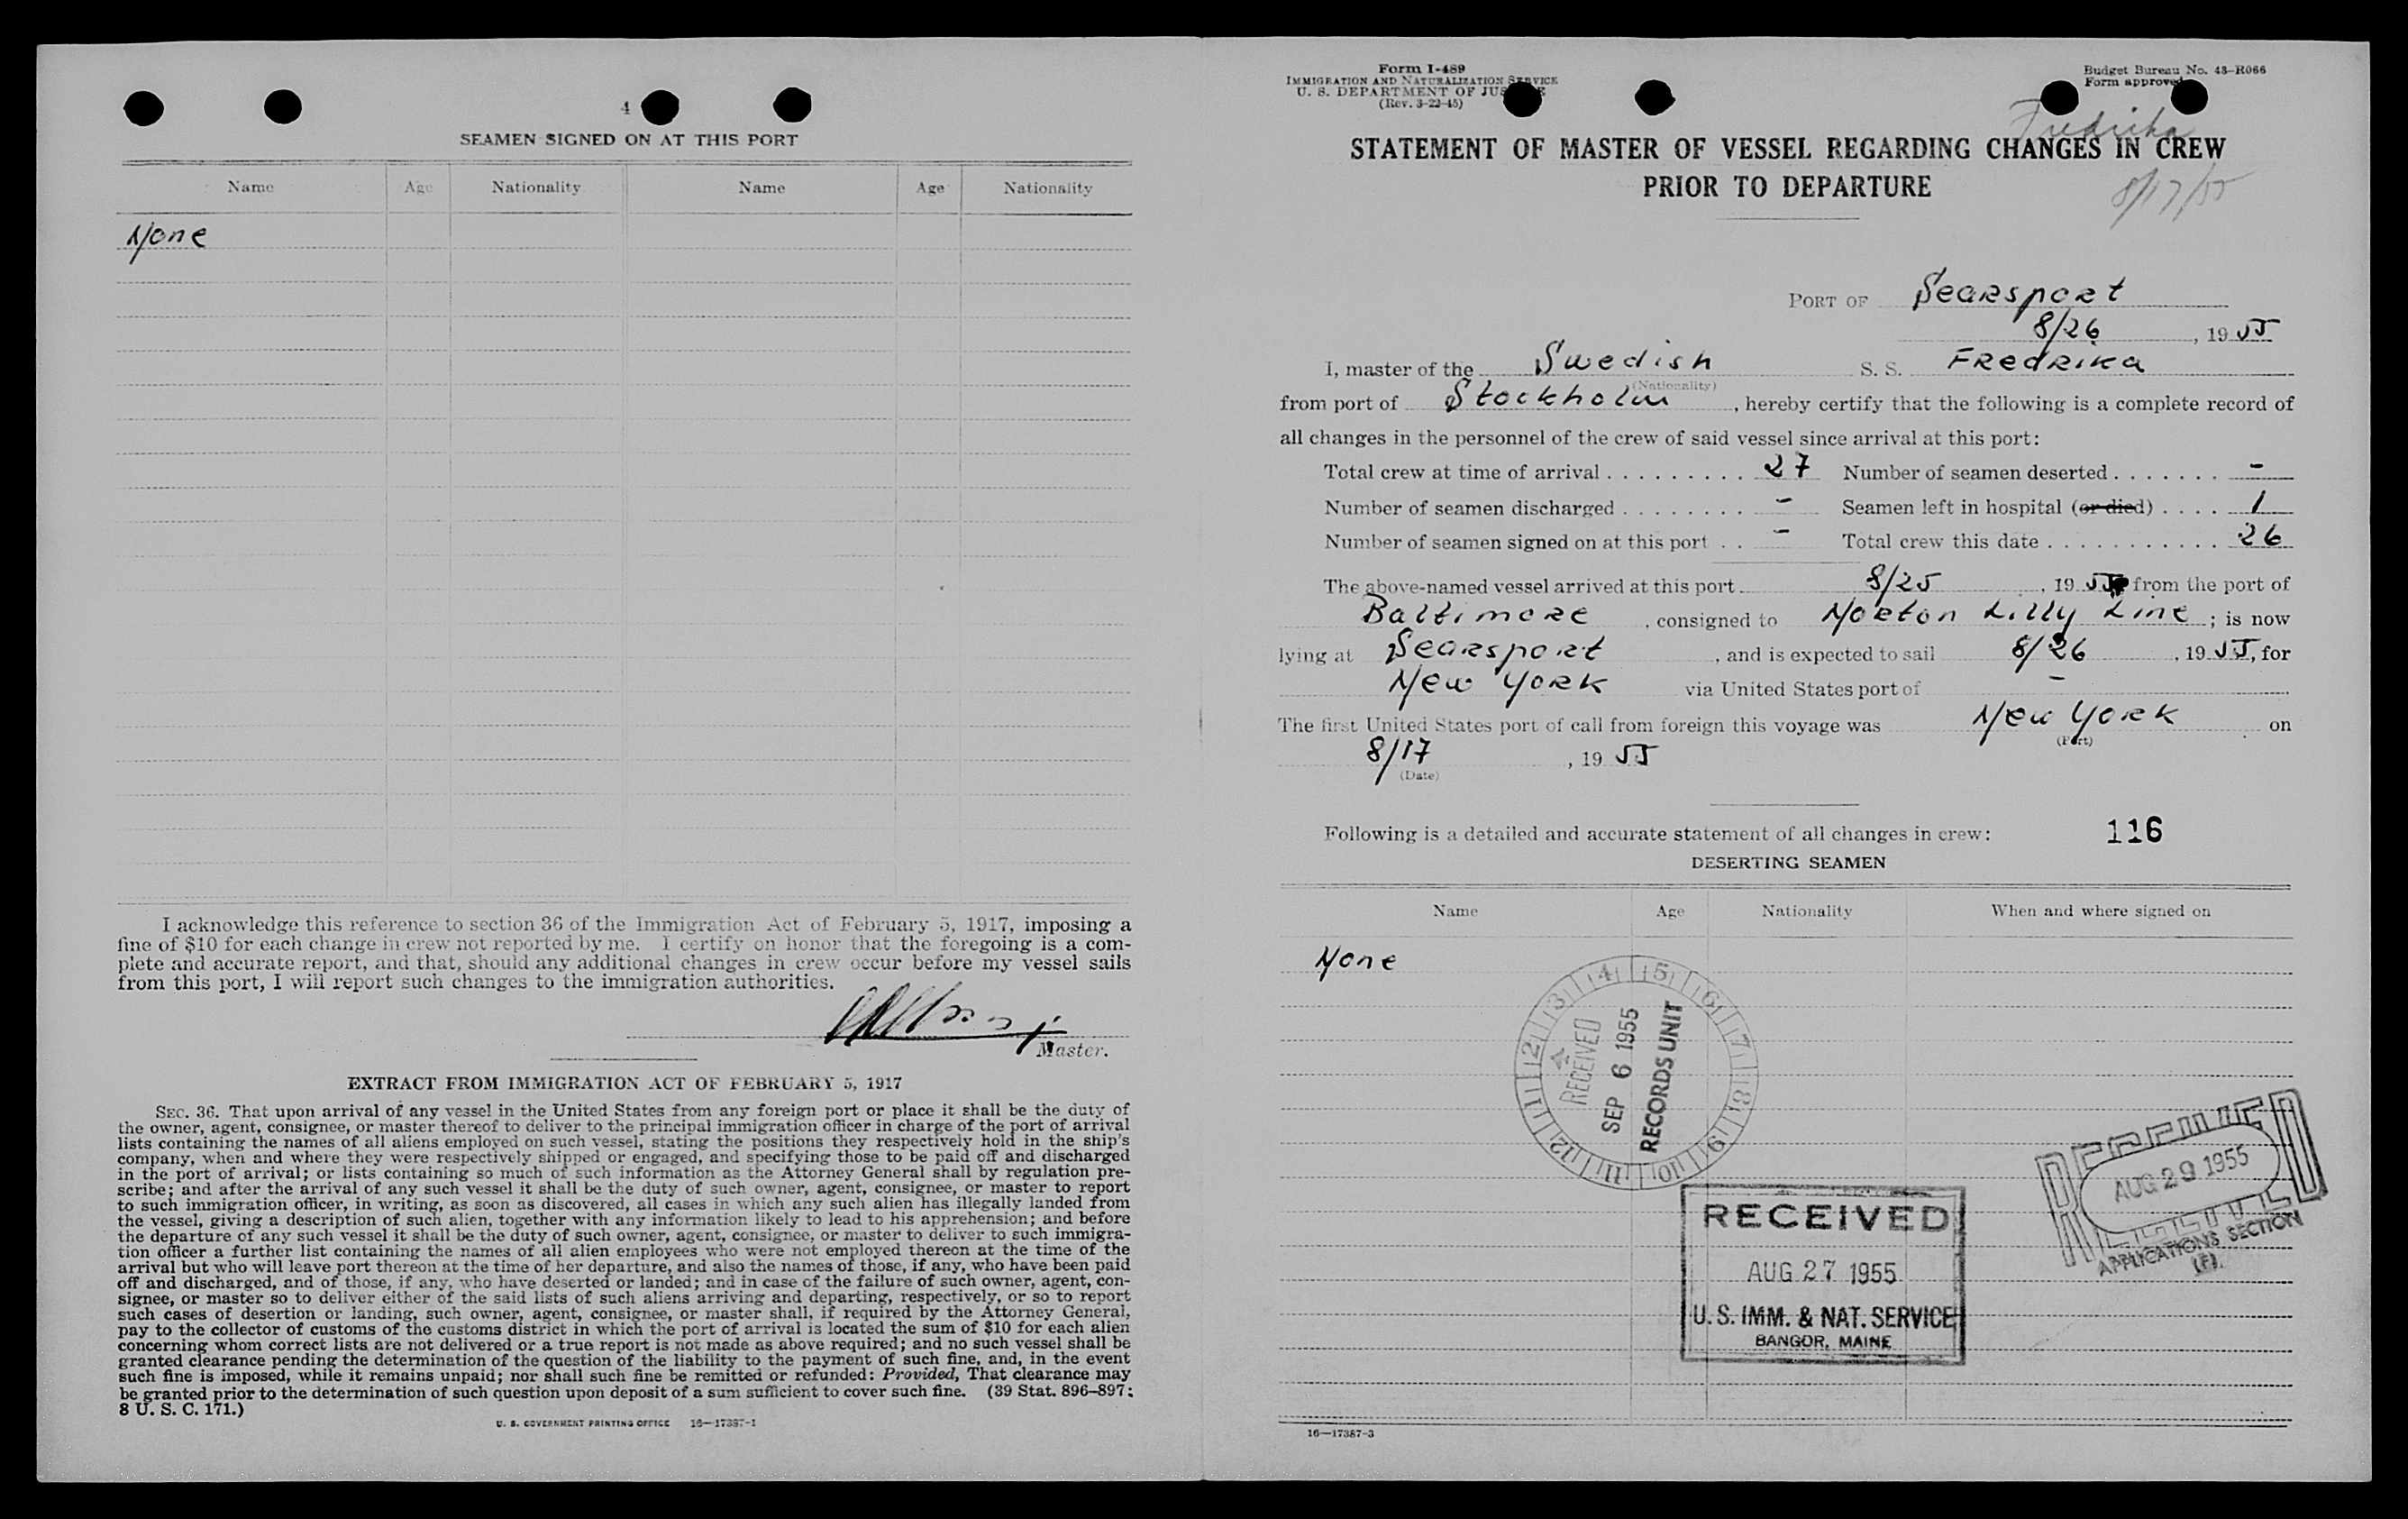 4
SEAMEN SIGNED ON AT THIS PORT
Name Age Nationality Name Age Nationality
None
I acknowledge this reference to section 36 of the Immigration Act of February 5, 1917, imposing a
fine of $10 for each change in crew not reported by me. I certify on honor that the foregoing is a com-
plete and accurate report, and that, should any additional changes in crew occur before my vessel sails
from this port, I will report such changes to the immigration authorities.
Master.
EXTRACT FROM IMMIGRATION ACT OF FEBRUARY 5, 1917
SEC. 36. That upon arrival of any vessel in the United States from any foreign port or place it shall be the duty of
the owner, agent, consignee, or master thereof to deliver to the principal immigration officer in charge of the port of arrival
lists containing the names of all aliens employed on such vessel, stating the positions they respectively hold in the ship's
company, when and where they were respectively shipped or engaged, and specifying those to be paid off and discharged
in the port of arrival; or lists containing so much of such information as the Attorney General shall by regulation pre-
scribe; and after the arrival of any such vessel it shall be the duty of such owner, agent, consignee, or master to report
to such immigration officer, in writing, as soon as discovered, all cases in which any such alien has illegally landed from
the vessel, giving a description of such alien, together with any information likely to lead to his apprehension; and before
the departure of any such vessel it shall be the duty of such owner, agent, consignee, or master to deliver to such immigra-
tion officer a further list containing the names of all alien employees who were not employed thereon at the time of the
arrival but who will leave port thereon at the time of her departure, and also the names of those, if any, who have been paid
off and discharged, and of those, if any, who have deserted or landed; and in case of the failure of such owner, agent, con-
signee, or master so to deliver either of the said lists of such aliens arriving and departing, respectively, or so to report
such cases of desertion or landing, such owner, agent, consignee, or master shall, if required by the Attorney General,
pay to the collector of customs of the customs district in which the port of arrival is located the sum of $10 for each alien
concerning whom correct lists are not delivered or a true report is not made as above required; and no such vessel shall be
granted clearance pending the determination of the question of the liability to the payment of such fine, and, in the event
such fine is imposed, while it remains unpaid; nor shall such fine be remitted or refunded: Provided, That clearance may
be granted prior to the determination of such question upon deposit of a sum sufficient to cover such fine. (39 Stat. 896-897;
8 U. S. C. 171.)
U. S. GOVERNMENT PRINTING OFFICE 16—17387-1
Form I-489
IMMIGRATION AND NATURALIZATION SERVICE
U. S. DEPARTMENT OF JUSTICE
(Rev. 3-22-45)
Budget Bureau No. 43-R066
Form approved
Fredrika
STATEMENT OF MASTER OF VESSEL REGARDING CHANGES IN CREW
PRIOR TO DEPARTURE
8/17/55
PORT OF Searsport
8/26, 19 55
I, master of the Swedish S. S. Fredrika
(Nationality)
from port of Stockholm, hereby certify that the following is a complete record of
all changes in the personnel of the crew of said vessel since arrival at this port:
Total crew at time of arrival 27 Number of seamen deserted -
Number of seamen discharged - Seamen left in hospital (or died) 1
Number of seamen signed on at this port - Total crew this date 26
The above-named vessel arrived at this port 8/25, 19 55 from the port of
Baltimore, consigned to Norton Lilly Line; is now
lying at Searsport, and is expected to sail 8/26, 19 55, for
New York via United States port of -
The first United States port of call from foreign this voyage was New York on
(Port)
8/17, 19 55
(Date)
Following is a detailed and accurate statement of all changes in crew: 116
DESERTING SEAMEN
Name Age Nationality When and where signed on
None
1 2 3 4 5 6 7 8 9 10 11 12
RECEIVED
SEP 6 1955
RECORDS UNIT
RECEIVED
AUG 27 1955
U. S. IMM. & NAT. SERVICE
BANGOR, MAINE
RECEIVED
AUG 29 1955
APPLICATIONS SECTION
16—17387-3